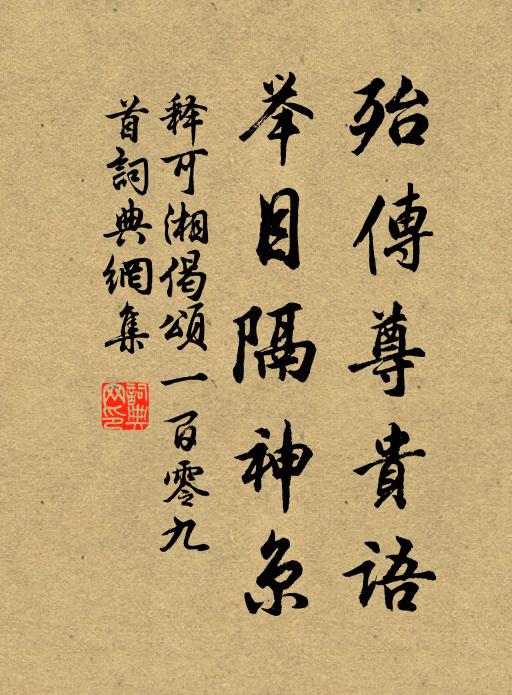 殆傳尊貴語
举目隔神京
释可湘偈頌一百零九
首詞典網集
詞典网印